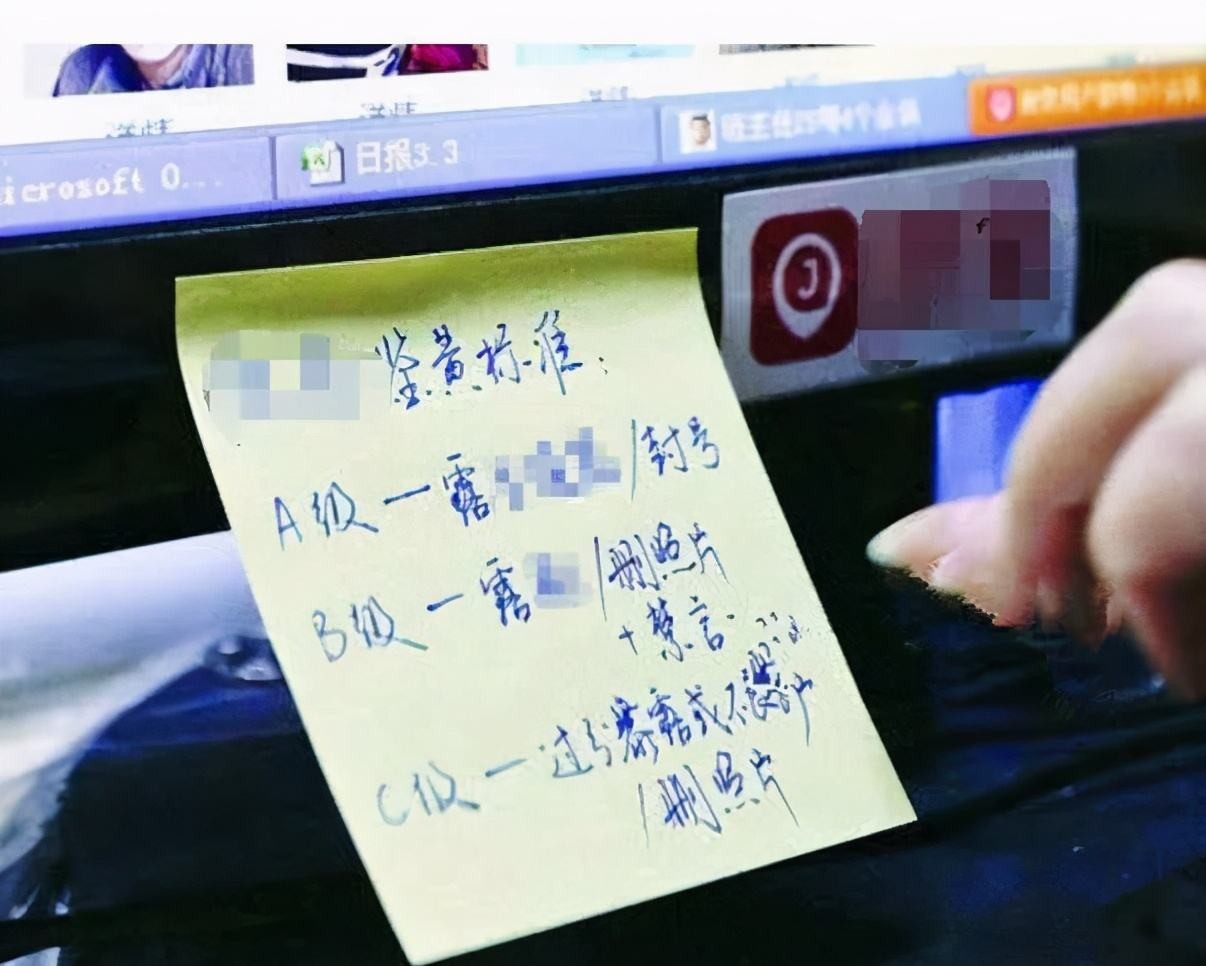 icrosoft O...
日报3.3
J
鉴黄标准:
A级一露 /封号
B级一露 /删照片
+禁言.
C级一过分暴露或不
/删照片